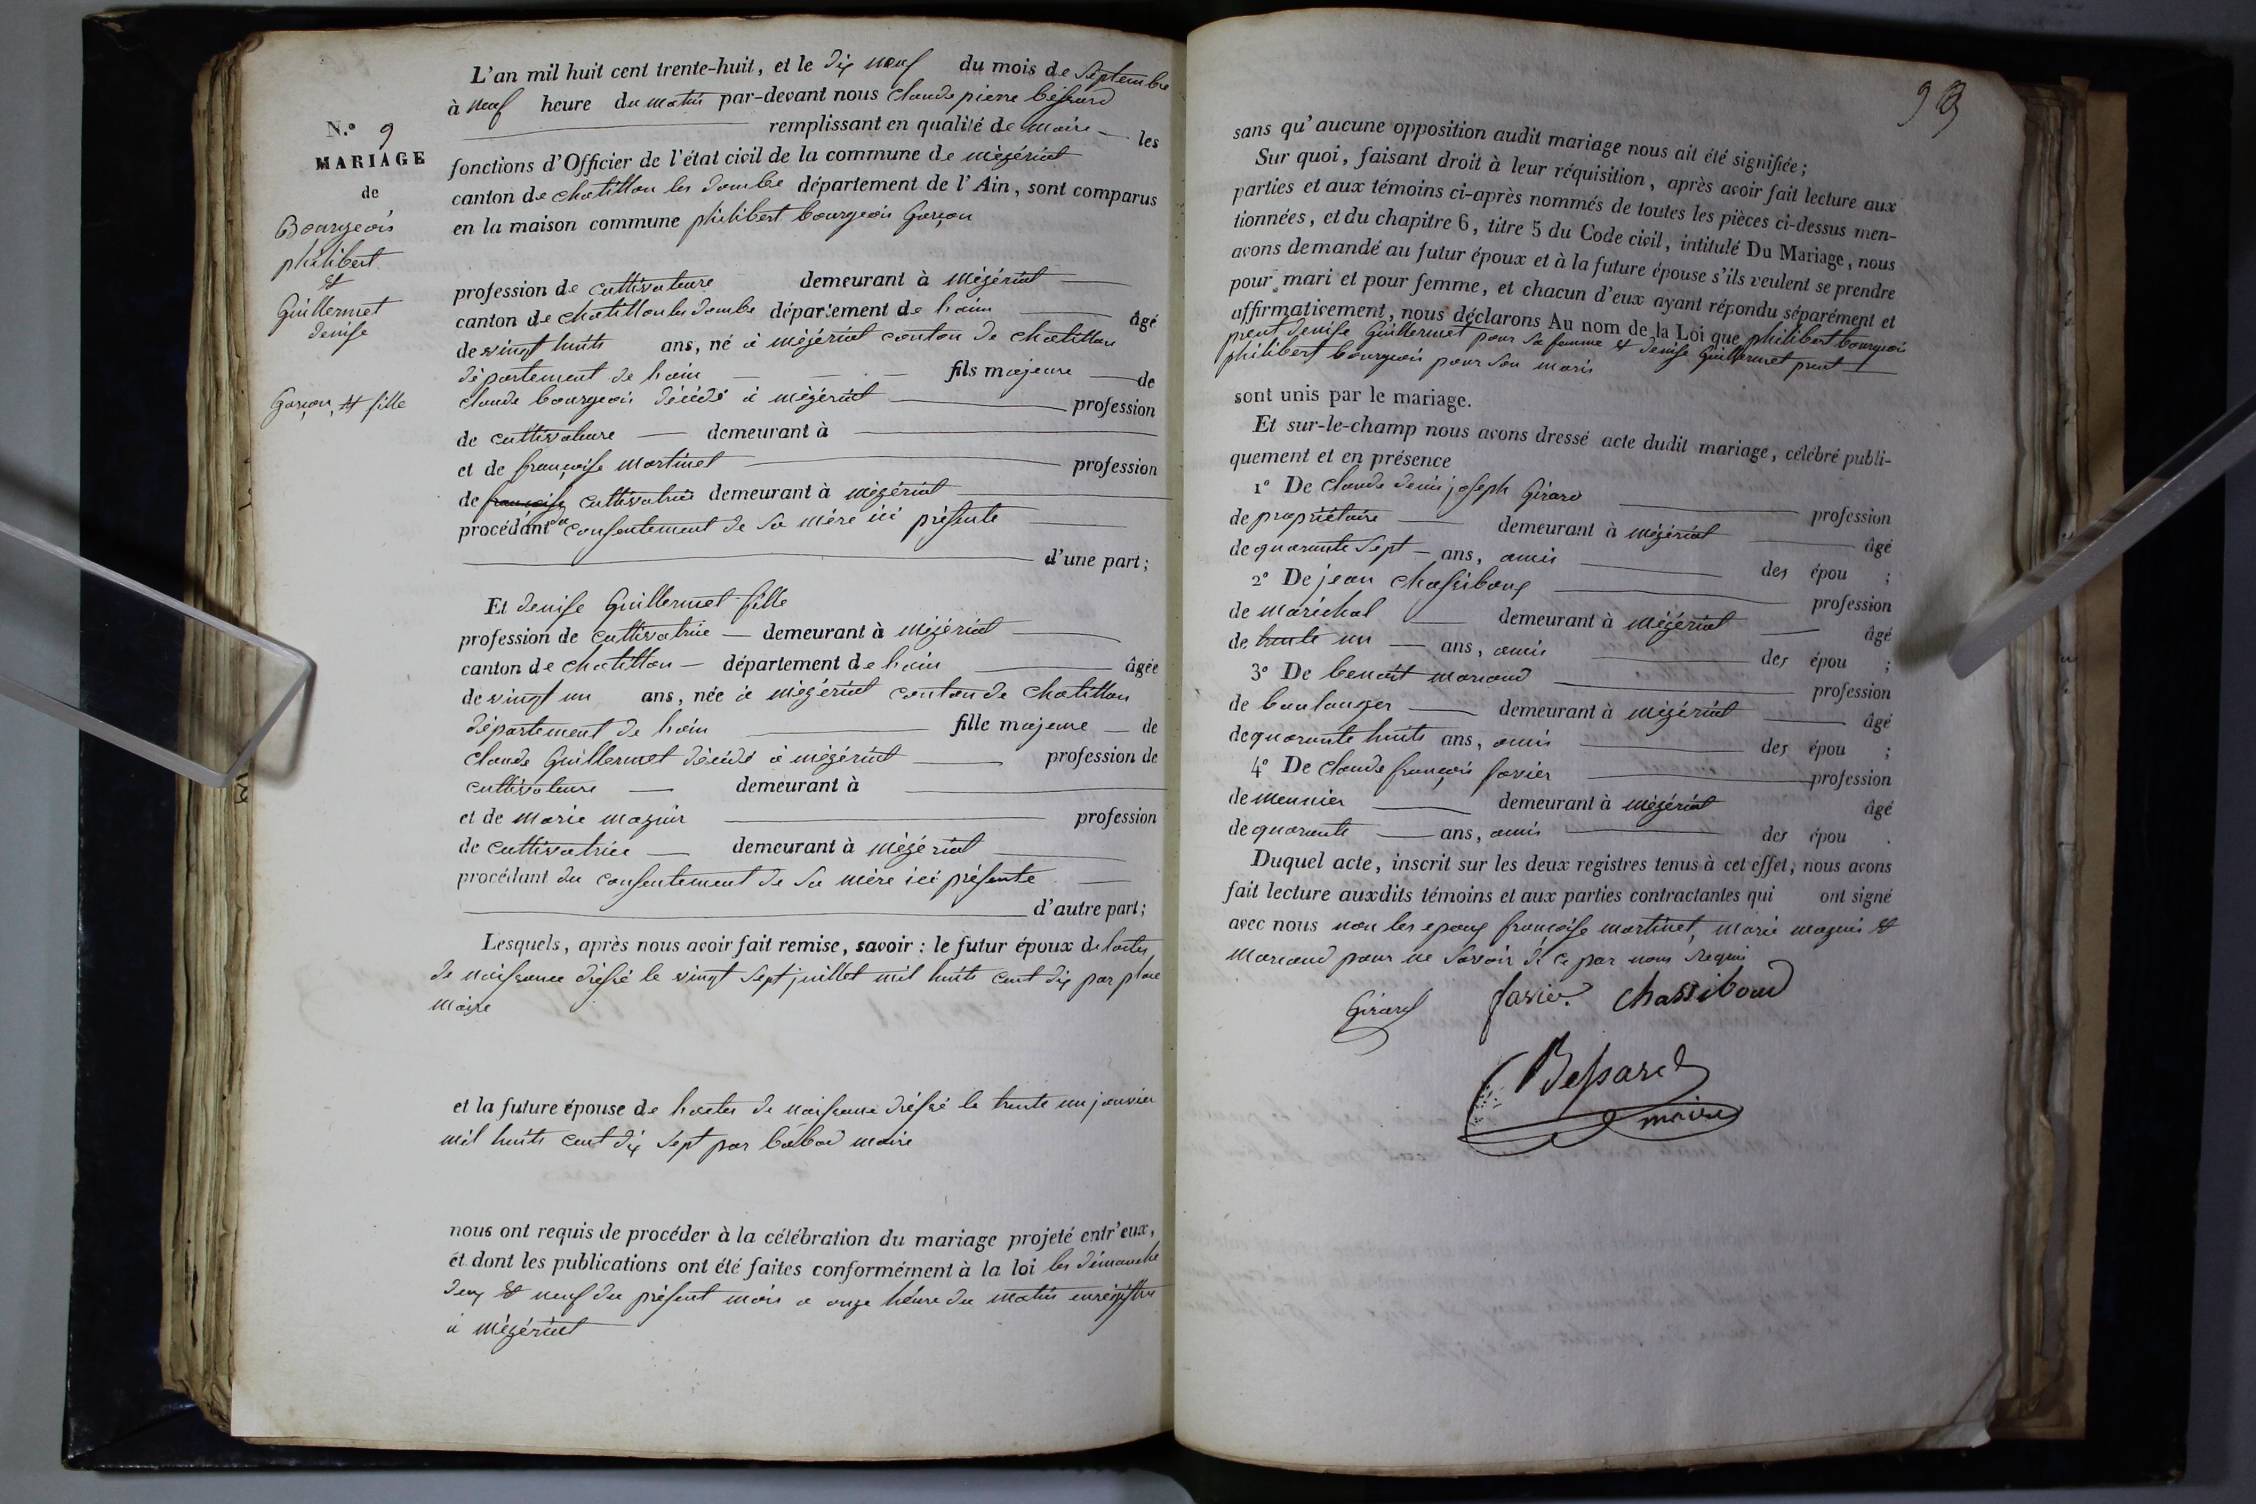 L'an mil huit cent trente-huit, et le dix neuf du mois de Septembre
à neuf heure du matin par-devant nous claude pierre béssard
remplissant en qualité de maire les
N.° 9
MARIAGE
de
Bourgeois
philibert
et
Guillermet
denise
Garçon et fille
fonctions d'Officier de l'état civil de la commune de mézériat
canton de chatillon les dombe département de l'Ain, sont comparus
en la maison commune philibert bourgeois Garçon
profession de cultivateure demeurant à Mézériat
canton de chatillon les dombe département de hain âgé
de vingt huits ans, né à mézériat canton de chatillon
département de hain fils majeure de
claude bourgeois décédé à mézériat profession
de cultivateure demeurant à
et de françoise martinet profession
de françoise cultivatrice demeurant à mézériat
procédant du consentement de sa mère ici présente
d'une part;
Et denise Guillermet fille
profession de cultivatrice demeurant à mézériat
canton de chatillon département de hain âgée
de vingt un ans, née à mézériat canton de chatillon
département de hain fille majeure de
claude Guillermet décédé à mézériat profession de
cultivateure demeurant à
et de marie magnin profession
de cultivatrice demeurant à mézériat
procédant du consentement de sa mère ici présente
d'autre part;
Lesquels, après nous avoir fait remise, savoir : le futur époux de lactes
de naissance dressé le vingt sept juillet mil huits cent dix par
maire
et la future épouse de hactes de naissance dréssé le trente un janvier
mil huits cent dix sept par maire
nous ont requis de procéder à la célébration du mariage projeté entr'eux,
et dont les publications ont été faites conformément à la loi les démanche
deux et neuf du présent mois a onze héure du matin enregistré
à mézériat
93
sans qu'aucune opposition audit mariage nous ait été signifiée;
Sur quoi, faisant droit à leur réquisition, après avoir fait lecture aux
parties et aux témoins ci-après nommés de toutes les pièces ci-dessus men-
tionnées, et du chapitre 6, titre 5 du Code civil, intitulé Du Mariage, nous
avons demandé au futur époux et à la future épouse s'ils veulent se prendre
pour mari et pour femme, et chacun d'eux ayant répondu séparément et
affirmativement, nous déclarons Au nom de la Loi que philibert bourgeois
prent denise Guillermet pour sa femme et denise Guillermet prent
philibert bourgeois pour son maris
sont unis par le mariage.
Et sur-le-champ nous avons dressé acte dudit mariage, célébré publi-
quement et en présence
1° De claude denis joseph Girard profession
de propriétaire demeurant à mézériat âgé
de quarante sept ans, amis des épou ;
2° De jean chassiboux profession
de maréchal demeurant à mézériat âgé
de trente un ans, amis des épou ;
3° De benoit morand profession
de boulanger demeurant à mézériat âgé
de quarante huits ans, amis des épou ;
4° De claude françois favier profession
de meunier demeurant à mézériat âgé
de quarante ans, amis des épou .
Duquel acte, inscrit sur les deux registres tenus à cet effet, nous avons
fait lecture auxdits témoins et aux parties contractantes qui ont signé
avec nous non les epoux françoise martinet, marie magnin et
morand pour ne savoir de ce par nous Requis
Girard favier chassiboud
Bessard
maire